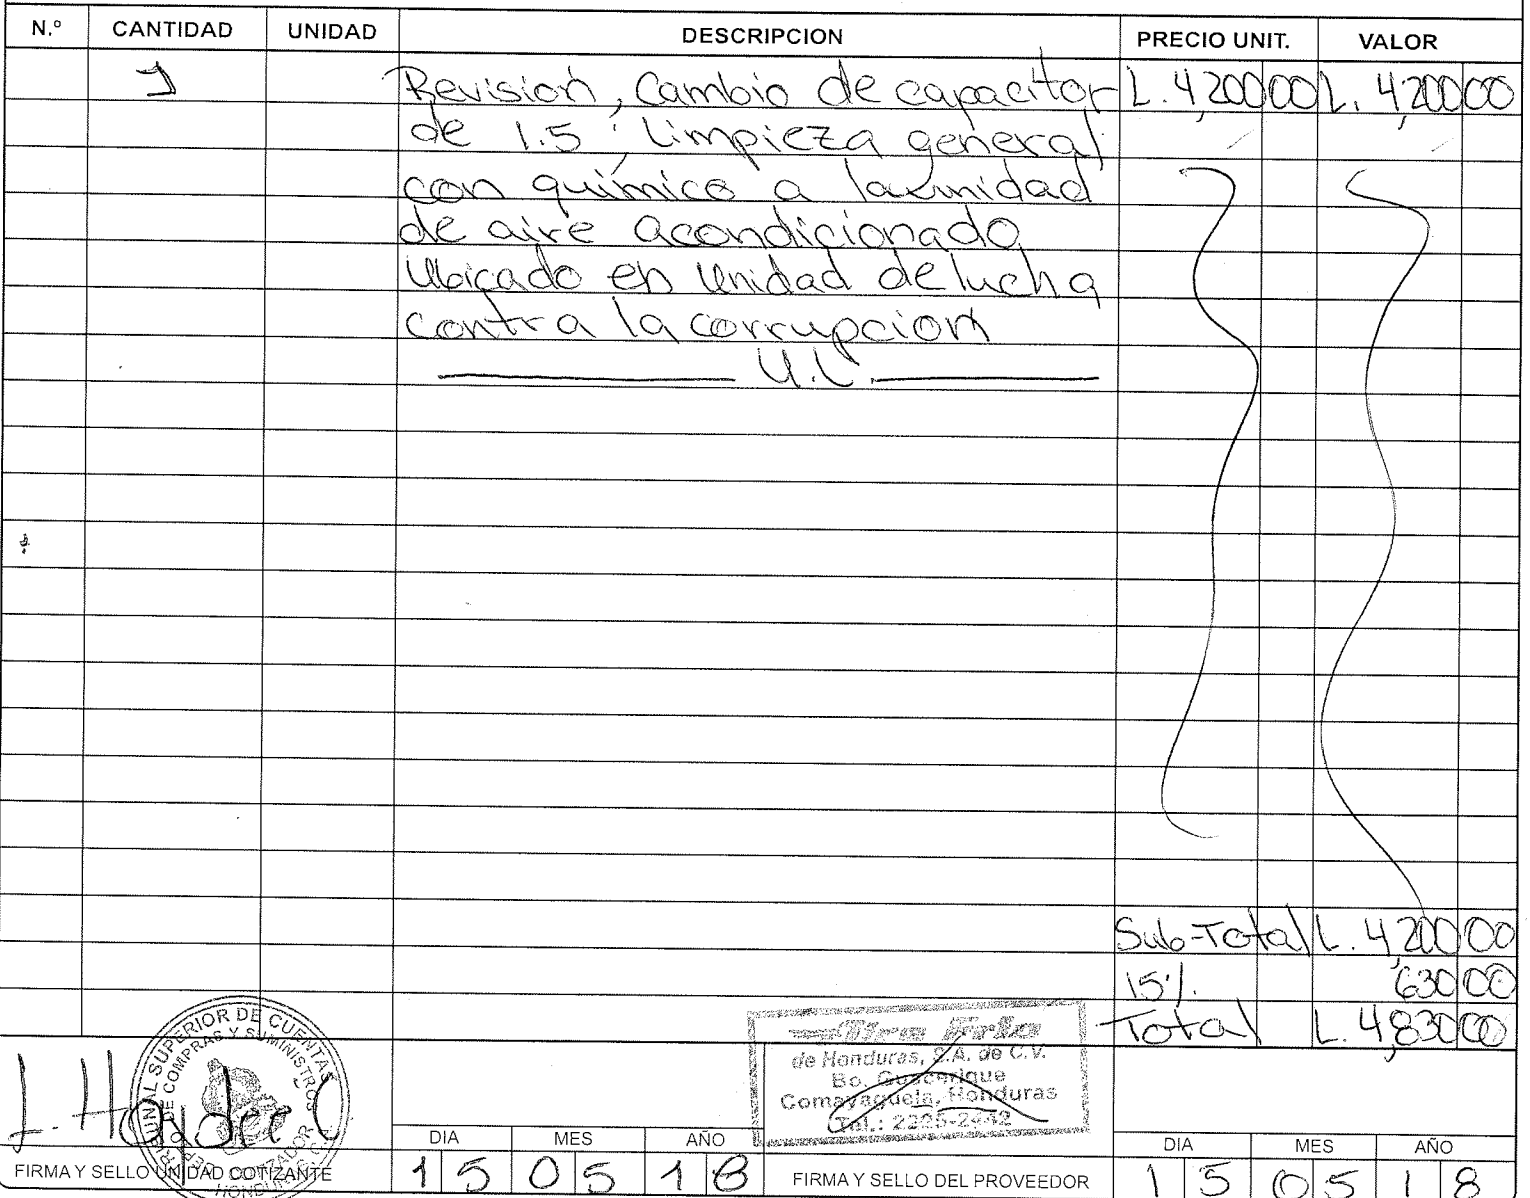 N.º CANTIDAD UNIDAD DESCRIPCION PRECIO UNIT. VALOR
1 Revision, Cambio de capacitor L. 4,200 00 L. 4,200 00
de 1.5, Limpieza general
con químico a la unidad
de aire acondicionado
Ubicado en Unidad de lucha
contra la corrupcion
U.L.
Sub-Total L. 4,200 00
15%. 630 00
Total L. 4,830 00
TRIBUNAL SUPERIOR DE CUENTAS
DE COMPRAS Y SUMINISTROS
COTIZADOR
HONDURAS
Aire Frio
de Honduras, S.A. de C.V.
Bo. Guacerique
Comayaguela, Honduras
Tel.: 2225-2442
DIA MES AÑO DIA MES AÑO
FIRMA Y SELLO UNIDAD COTIZANTE 15 05 18 FIRMA Y SELLO DEL PROVEEDOR 15 05 18